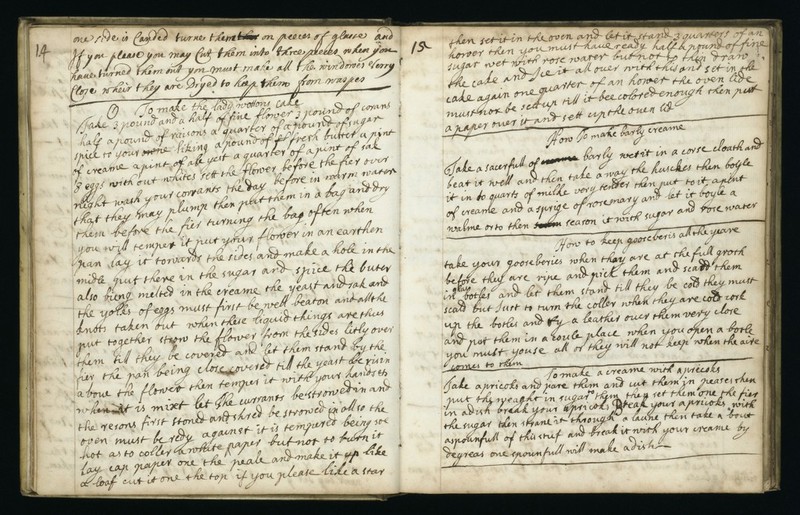 14
one side is Canded turne them on peeces of glasse and
If you please you may Cut them into three peeces when you
have turned them out you must make all the windowes very
Close wheir they are dryed to keep them from waspes
To make the lady cake
Take 3 pound and a half of fine flower 3 pound of corans
half a pound of raisons a quarter of a pound of sugar
spice to your liking a pound of fresh butter a pint
of creame a pint of ale yest a quarter of a pint of sak
8 eggs with out whites sett the flower before the fier over
night wash your corrants the day before in warm water
that they may plump then put them in a bag and dry
them before the fier turning the bag often when
you will temper it put your flower in an earthen
pan lay it torwards the sides and make a hole in the
midle put there in the sugar and spice the buter
also being melted in the creame the yeast and sak and
the yolks of eggs must first be well beaton and all the
knots taken out when these liquid things are thus
put together strow the flower from the sides litly over
them till they be covered and let them stand by the
fier the pan being close covered till the yeast be risen
above the flower then temper it with your hands
when it is mixt let the currants be strowed in and
the resons first stoned and shred be strowed in also the
oven must be redy against it is tempered being soe
hot as to coller a white paper but not to burn it
lay cap paper one the peale and make it up like
a loaf cut it one the top if you please like a star
15
then set it in the oven and let it stand 3 quarters of an
hower then you must have ready half a pound of fine
sugar wet with rose water but not to thin draw
the cake and Ice it all over with this and set in the
cake again one quarter of an hower the oven lide
must not be set up till it bee colored enough then put
a paper over it and sett up the oven lid
How To make barly creame
Take a sacerfull of barly wet it in a corse cloath and
beat it well and then take a way the husckes then boyle
it in to quarts of milke very tender then put to it a pint
of creame and a sprige of rosemary and let it boyle a
walme or to then season it with sugar and rose water
How to keep gooseberis all the yeare
take your gooseberies when they are at the full groth
before they are ripe and pick them and scald them
in glas botles and let them stand till they be cold they must
scald but Just to turn the coller when they are cold cork
up the botles and ty a leather over them very close
and put them in a coule place when you open a botle
you must youse all or they will not keep when the aire
comes to them
To make a creame with apricoks
Take apricoks and pare them and cut them in peases then
put thy waight in sugar to them then set them one the fier
in a dish break your apricoks break your apricoks with
the sugar then strane it through a laune then take a bout
a spounfull of this stuf and break it with your creame by
degreas one spounfull will make a dish